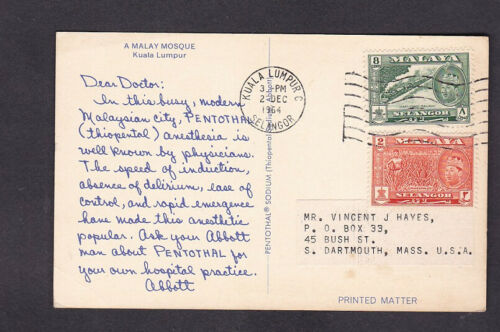 A MALAY MOSQUE
Kuala Lumpur
Dear Doctor:
In this busy, modern
Malaysian city, PENTOTHAL
(thiopental) anesthesia is
well known by physicians.
The speed of induction,
absence of delirium, ease of
control, and rapid emergence
have made this anesthetic
popular. Ask your Abbott
man about PENTOTHAL for
your own hospital practice.
Abbott
PENTOTHAL® SODIUM (Thiopental
KUALA LUMPUR C
PM
2 DEC
1964
SELANGOR
8
MALAYA
SELANGOR
2
MALAYA
SELANGOR
MR. VINCENT J HAYES,
P. O. BOX 33,
45 BUSH ST.
S. DARTMOUTH, MASS. U.S.A.
PRINTED MATTER